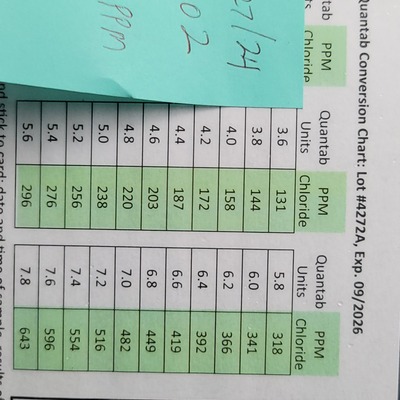 Quantab Conversion Chart: Lot #4272A, Exp. 09/2026
PPM Quantab PPM Quantab PPM
Chloride Units Chloride Units Chloride
3.6 131 5.8 318
3.8 144 6.0 341
4.0 158 6.2 366
4.2 172 6.4 392
4.4 187 6.6 419
4.6 203 6.8 449
4.8 220 7.0 482
5.0 238 7.2 516
5.2 256 7.4 554
5.4 276 7.6 596
5.6 296 7.8 643
27/24
02
PPM
stick to card; date and time of sample results